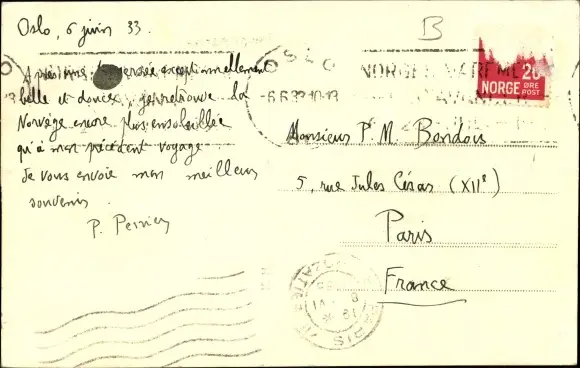 Oslo, 6 juin 33.
B
OSLO
-6.6.33.10-13
NORGES
20
NORGE ØRE
POST
Après une traversée exceptionnellement
belle et douce, je retrouve la
Norvège encore plus ensoleillée
qu'à mon précédent voyage
Je vous envoie mon meilleur
souvenir.
P. Perrier
Monsieur P. M. Bondois
5, rue Jules César (XIIe)
Paris
France
PARIS